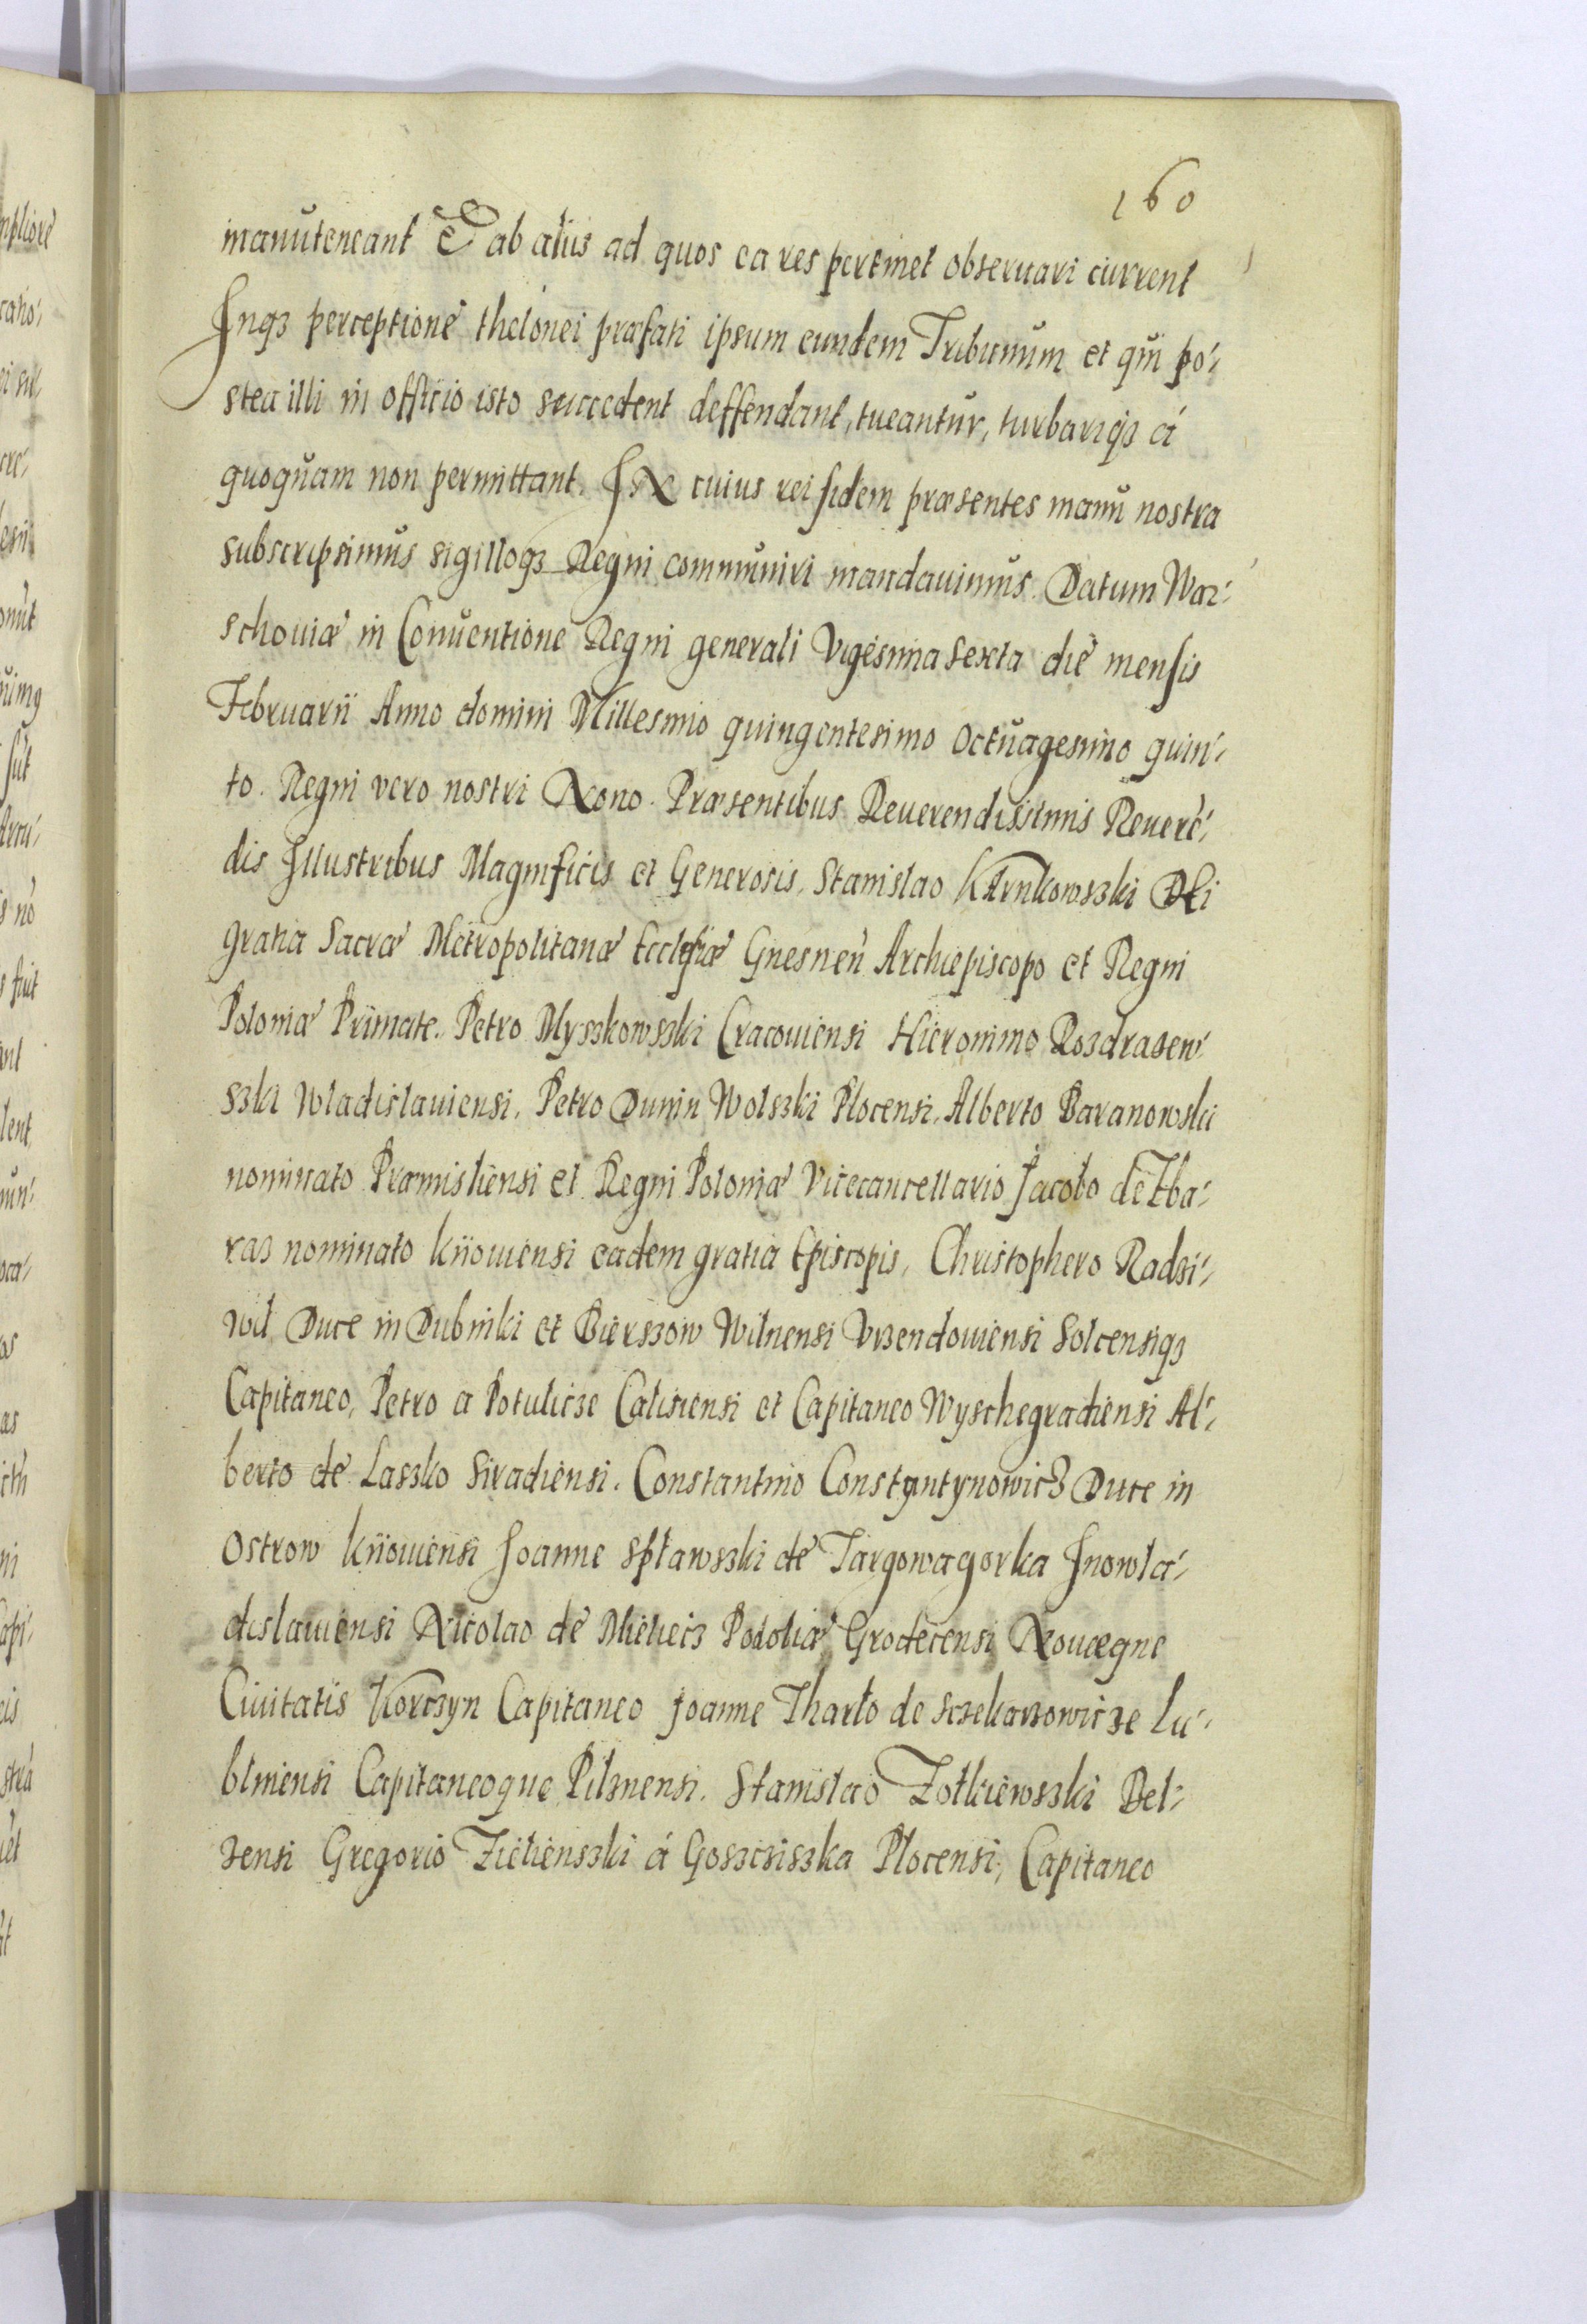 160
manutencant Et ab alijs ad quos ea res pertinet obseruari current
Inqȝ perceptione thelonei præfati ipsum eundem Tribunum et qui po-
stea illi in officio isto succedent deffendant, tueantur, turbariqȝ á
quoquam non permittant. IN cuius rei fidem præsentes manu nostra
subscripsimus sigilloqȝ Regni communiri mandauimus. Datum War-
schouiæ in Conuentione Regni generali Vigesima sexta die mensis
Februarii Anno domini Millesimo quingentesimo Octuagesimo quin-
to. Regni vero nostri Nono. Præsentibus Reuerendissimis Reuerē-
dis Illustribus Magnificis et Generosis, Stanislao Karnkowszki Dei
gratia Sacræ Metropolitanæ Ecclesiæ Gnesnen̄ Archiepiscopo et Regni
Poloniæ Primate. Petro Myszkowszki Cracouiensi Hieronimo Rozdrazew
szki Wladislauiensi, Petro Dunin Wolszki Plocensi, Alberto Baranowski
nominato Præmisliensi et Regni Poloniæ Vicecancellario Jacobo de Zba-
raz nominato kiiouiensi eadem gratia Episcopis, Christophero Radzi-
wil Duce in Dubinki et Bierszow Wilnensi Vrzendouiensi Solcensiqȝ
Capitaneo, Petro a Potulicze Calisiensi et Capitaneo Wyschegradiensi Al-
berto de Laszko Siradiensi. Constantino Constantynowicz Duce in
Ostrow kiiouiensi Joanne Spławszki de Targowagorka Inowla-
dislauiensi Nicolao de Mielecz Podoliæ Grodecensi Nouæqne
Ciuitatis Korczyn Capitaneo Joanne Tharło de Sczekarzowicze Lu-
blinensi Capitaneoque Pilznensi. Stanislao Zołkiewszki Bel-
zensi Gregorio Zielienszki á Goszcziszka Plocensi, Capitaneo